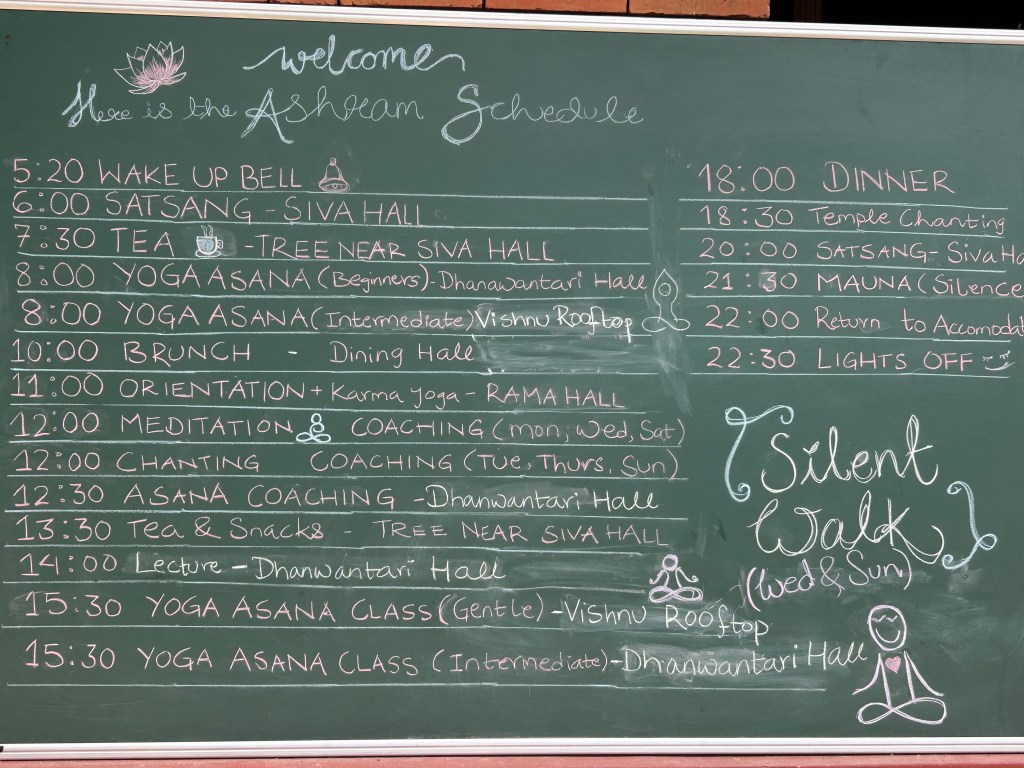 welcome
Here is the Ashram Schedule
5:20 WAKE UP BELL
6:00 SATSANG - SIVA HALL
7:30 TEA - TREE NEAR SIVA HALL
8:00 YOGA ASANA (Beginners) - Dhanawantari Hall
8:00 YOGA ASANA (Intermediate) Vishnu Rooftop
10:00 BRUNCH - Dining Hall
11:00 ORIENTATION + Karma Yoga - RAMA HALL
12:00 MEDITATION COACHING (mon, Wed, Sat)
12:00 CHANTING COACHING (Tue, Thurs, Sun)
12:30 ASANA COACHING - Dhanwantari Hall
13:30 Tea & Snacks - TREE NEAR SIVA HALL
14:00 Lecture - Dhanwantari Hall
15:30 YOGA ASANA CLASS (Gentle) - Vishnu Rooftop
15:30 YOGA ASANA CLASS (Intermediate) - Dhanwantari Hall
18:00 DINNER
18:30 Temple Chanting
20:00 SATSANG - Siva Ha
21:30 MAUNA (Silence
22:00 Return to Accomodat
22:30 LIGHTS OFF
Silent
Walk
(Wed & Sun)